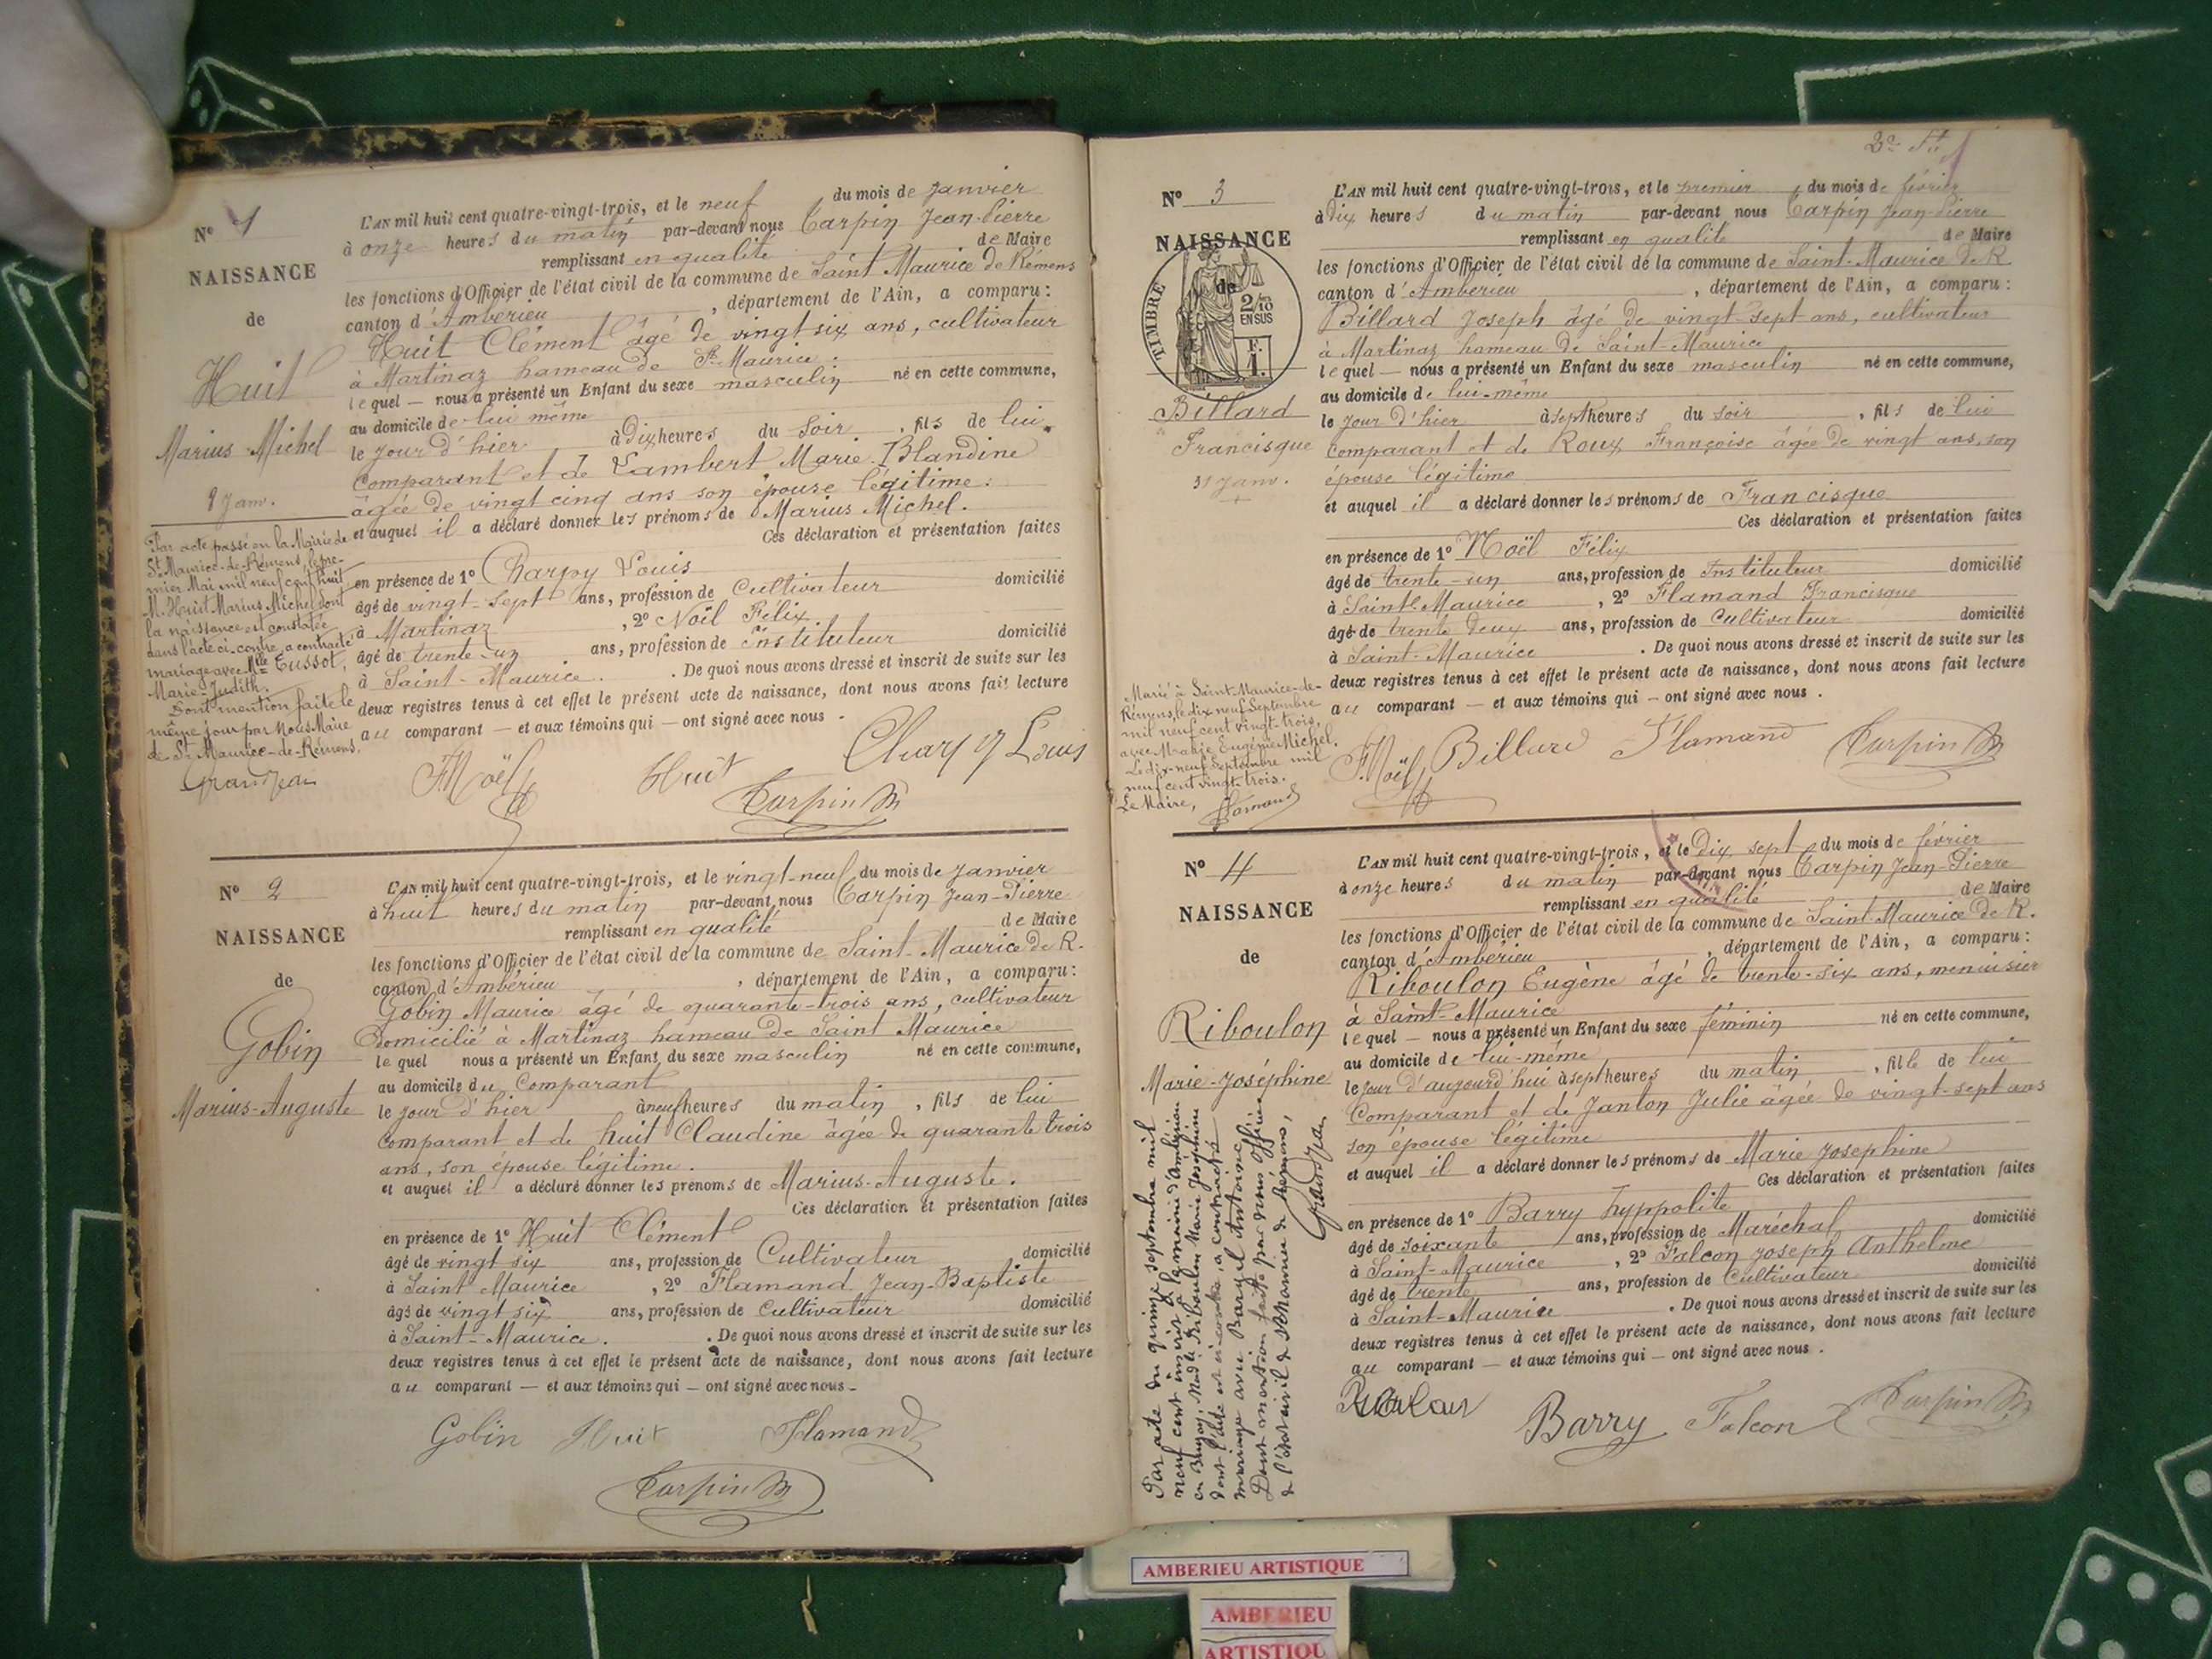 N° 1
NAISSANCE
de
Huit
Marius Michel
8 Janv.
Par acte passé en la Mairie de
St Maurice-de-Rémens, le pre-
mier Mai mil neuf cent huit
M. Huit Marius Michel dont
la naissance est constatée
dans l'acte ci-contre, a contracté
mariage avec Mlle Tussot,
Marie-Judith.
Dont mention faite le
même jour par Nous Maire
de St Maurice-de-Rémens.
Grandjean
L'AN mil huit cent quatre-vingt-trois, et le neuf du mois de Janvier
à onze heures du matin par-devant nous Carpin Jean-Pierre
remplissant en qualité de Maire
les fonctions d'Officier de l'état civil de la commune de Saint Maurice de Rémens
canton d'Ambérieu , département de l'Ain, a comparu :
Huit Clément âgé de vingt-six ans, cultivateur
à Martinaz hameau de St Maurice.
lequel — nous a présenté un Enfant du sexe masculin né en cette commune,
au domicile de lui même
le jour d'hier à dix heures du soir , fils de lui
comparant et de Lambert Marie Blandine
âgée de vingt cinq ans son épouse légitime.
et auquel il a déclaré donner les prénoms de Marius Michel.
Ces déclaration et présentation faites
en présence de 1° Charpy Louis
âgé de vingt-sept ans, profession de Cultivateur domicilié
à Martinaz , 2° Noël Félix
âgé de trente-un ans, profession de instituteur domicilié
à Saint-Maurice . De quoi nous avons dressé et inscrit de suite sur les
deux registres tenus à cet effet le présent acte de naissance, dont nous avons fait lecture
au comparant — et aux témoins qui — ont signé avec nous .
F. Noël Huit Charpy Louis
Carpin
N° 2
NAISSANCE
de
Gobin
Marius-Auguste
L'AN mil huit cent quatre-vingt-trois, et le vingt-neuf du mois de Janvier
à huit heures du matin par-devant nous Carpin Jean-Pierre
remplissant en qualité de Maire
les fonctions d'Officier de l'état civil de la commune de Saint-Maurice de R.
canton d'Ambérieu , département de l'Ain, a comparu :
Gobin Maurice âgé de quarante-trois ans, cultivateur
Domicilié à Martinaz hameau de Saint Maurice
le quel nous a présenté un Enfant du sexe masculin né en cette commune,
au domicile du Comparant
le jour d'hier à neuf heures du matin , fils de lui
comparant et de huit Claudine âgée de quarante trois
ans, son épouse légitime.
et auquel il a déclaré donner les prénoms de Marius-Auguste.
Ces déclaration et présentation faites
en présence de 1° Huit Clément
âgé de vingt six ans, profession de Cultivateur domicilié
à Saint Maurice , 2° Flamand Jean-Baptiste
âgé de vingt six ans, profession de Cultivateur domicilié
à Saint-Maurice. . De quoi nous avons dressé et inscrit de suite sur les
deux registres tenus à cet effet le présent acte de naissance, dont nous avons fait lecture
au comparant — et aux témoins qui — ont signé avec nous .
Gobin Huit Flamand
Carpin
N° 3
NAISSANCE
de
TIMBRE
2/10
EN SUS
F.
1.
Billard
Francisque
31 Janv.
Marié à Saint-Maurice-de-
Rémens, le dix neuf Septembre
mil neuf cent vingt-trois,
avec Marie Eugénie Michel.
Le dix-neuf Septembre mil
neuf cent vingt-trois.
Le Maire,
L'AN mil huit cent quatre-vingt-trois, et le premier du mois de février
à dix heures du matin par-devant nous Carpin Jean-Pierre
remplissant en qualité de Maire
les fonctions d'Officier de l'état civil de la commune de Saint-Maurice de R
canton d'Ambérieu , département de l'Ain, a comparu :
Billard Joseph âgé de vingt-sept ans, cultivateur
à Martinaz hameau de Saint Maurice
lequel — nous a présenté un Enfant du sexe masculin né en cette commune,
au domicile de lui-même
le jour d'hier à sept heures du soir , fils de lui
comparant et de Roux Françoise âgée de vingt ans, son
épouse légitime
et auquel il a déclaré donner les prénoms de Francisque
Ces déclaration et présentation faites
en présence de 1° Noël Félix
âgé de trente-un ans, profession de Instituteur domicilié
à Saint Maurice , 2° Flamand Francisque
âgé de trente deux ans, profession de Cultivateur domicilié
à Saint-Maurice . De quoi nous avons dressé et inscrit de suite sur les
deux registres tenus à cet effet le présent acte de naissance, dont nous avons fait lecture
au comparant — et aux témoins qui — ont signé avec nous .
F. Noël Billard Flamand Carpin
N° 4
NAISSANCE
de
Riboulon
Marie-Joséphine
Par acte du quinze septembre mil
neuf cent inscrit à la mairie d'Ambérieu
en Bugey, Mad. lle Riboulon Marie Joséphine
dont l'acte est ci-contre, a contracté
mariage avec Barjel Antoine.
Dont mention faite par nous officier
de l'état civil de St Maurice de Rémens,
Grandjean
L'AN mil huit cent quatre-vingt-trois, et le dix sept du mois de février
à onze heures du matin par-devant nous Carpin Jean-Pierre
remplissant en qualité de Maire
les fonctions d'Officier de l'état civil de la commune de Saint-Maurice de R.
canton d'Ambérieu , département de l'Ain, a comparu :
Riboulon Eugène âgé de trente-six ans, menuisier
à Saint-Maurice
lequel — nous a présenté un Enfant du sexe féminin né en cette commune,
au domicile de lui-même
le jour d'aujourd'hui à sept heures du matin , fille de lui
Comparant et de Janton Julie âgée de vingt-sept ans
son épouse légitime
et auquel il a déclaré donner les prénoms de Marie Josephine
Ces déclaration et présentation faites
en présence de 1° Barry hyppolite
âgé de soixante ans, profession de Maréchal domicilié
à Saint-Maurice , 2° Falcon Joseph Anthelme
âgé de trente ans, profession de Cultivateur domicilié
à Saint-Maurice . De quoi nous avons dressé et inscrit de suite sur les
deux registres tenus à cet effet le présent acte de naissance, dont nous avons fait lecture
au comparant — et aux témoins qui — ont signé avec nous .
Barry Falcon Carpin
AMBERIEU ARTISTIQUE
AMBERIEU
ARTISTIQU